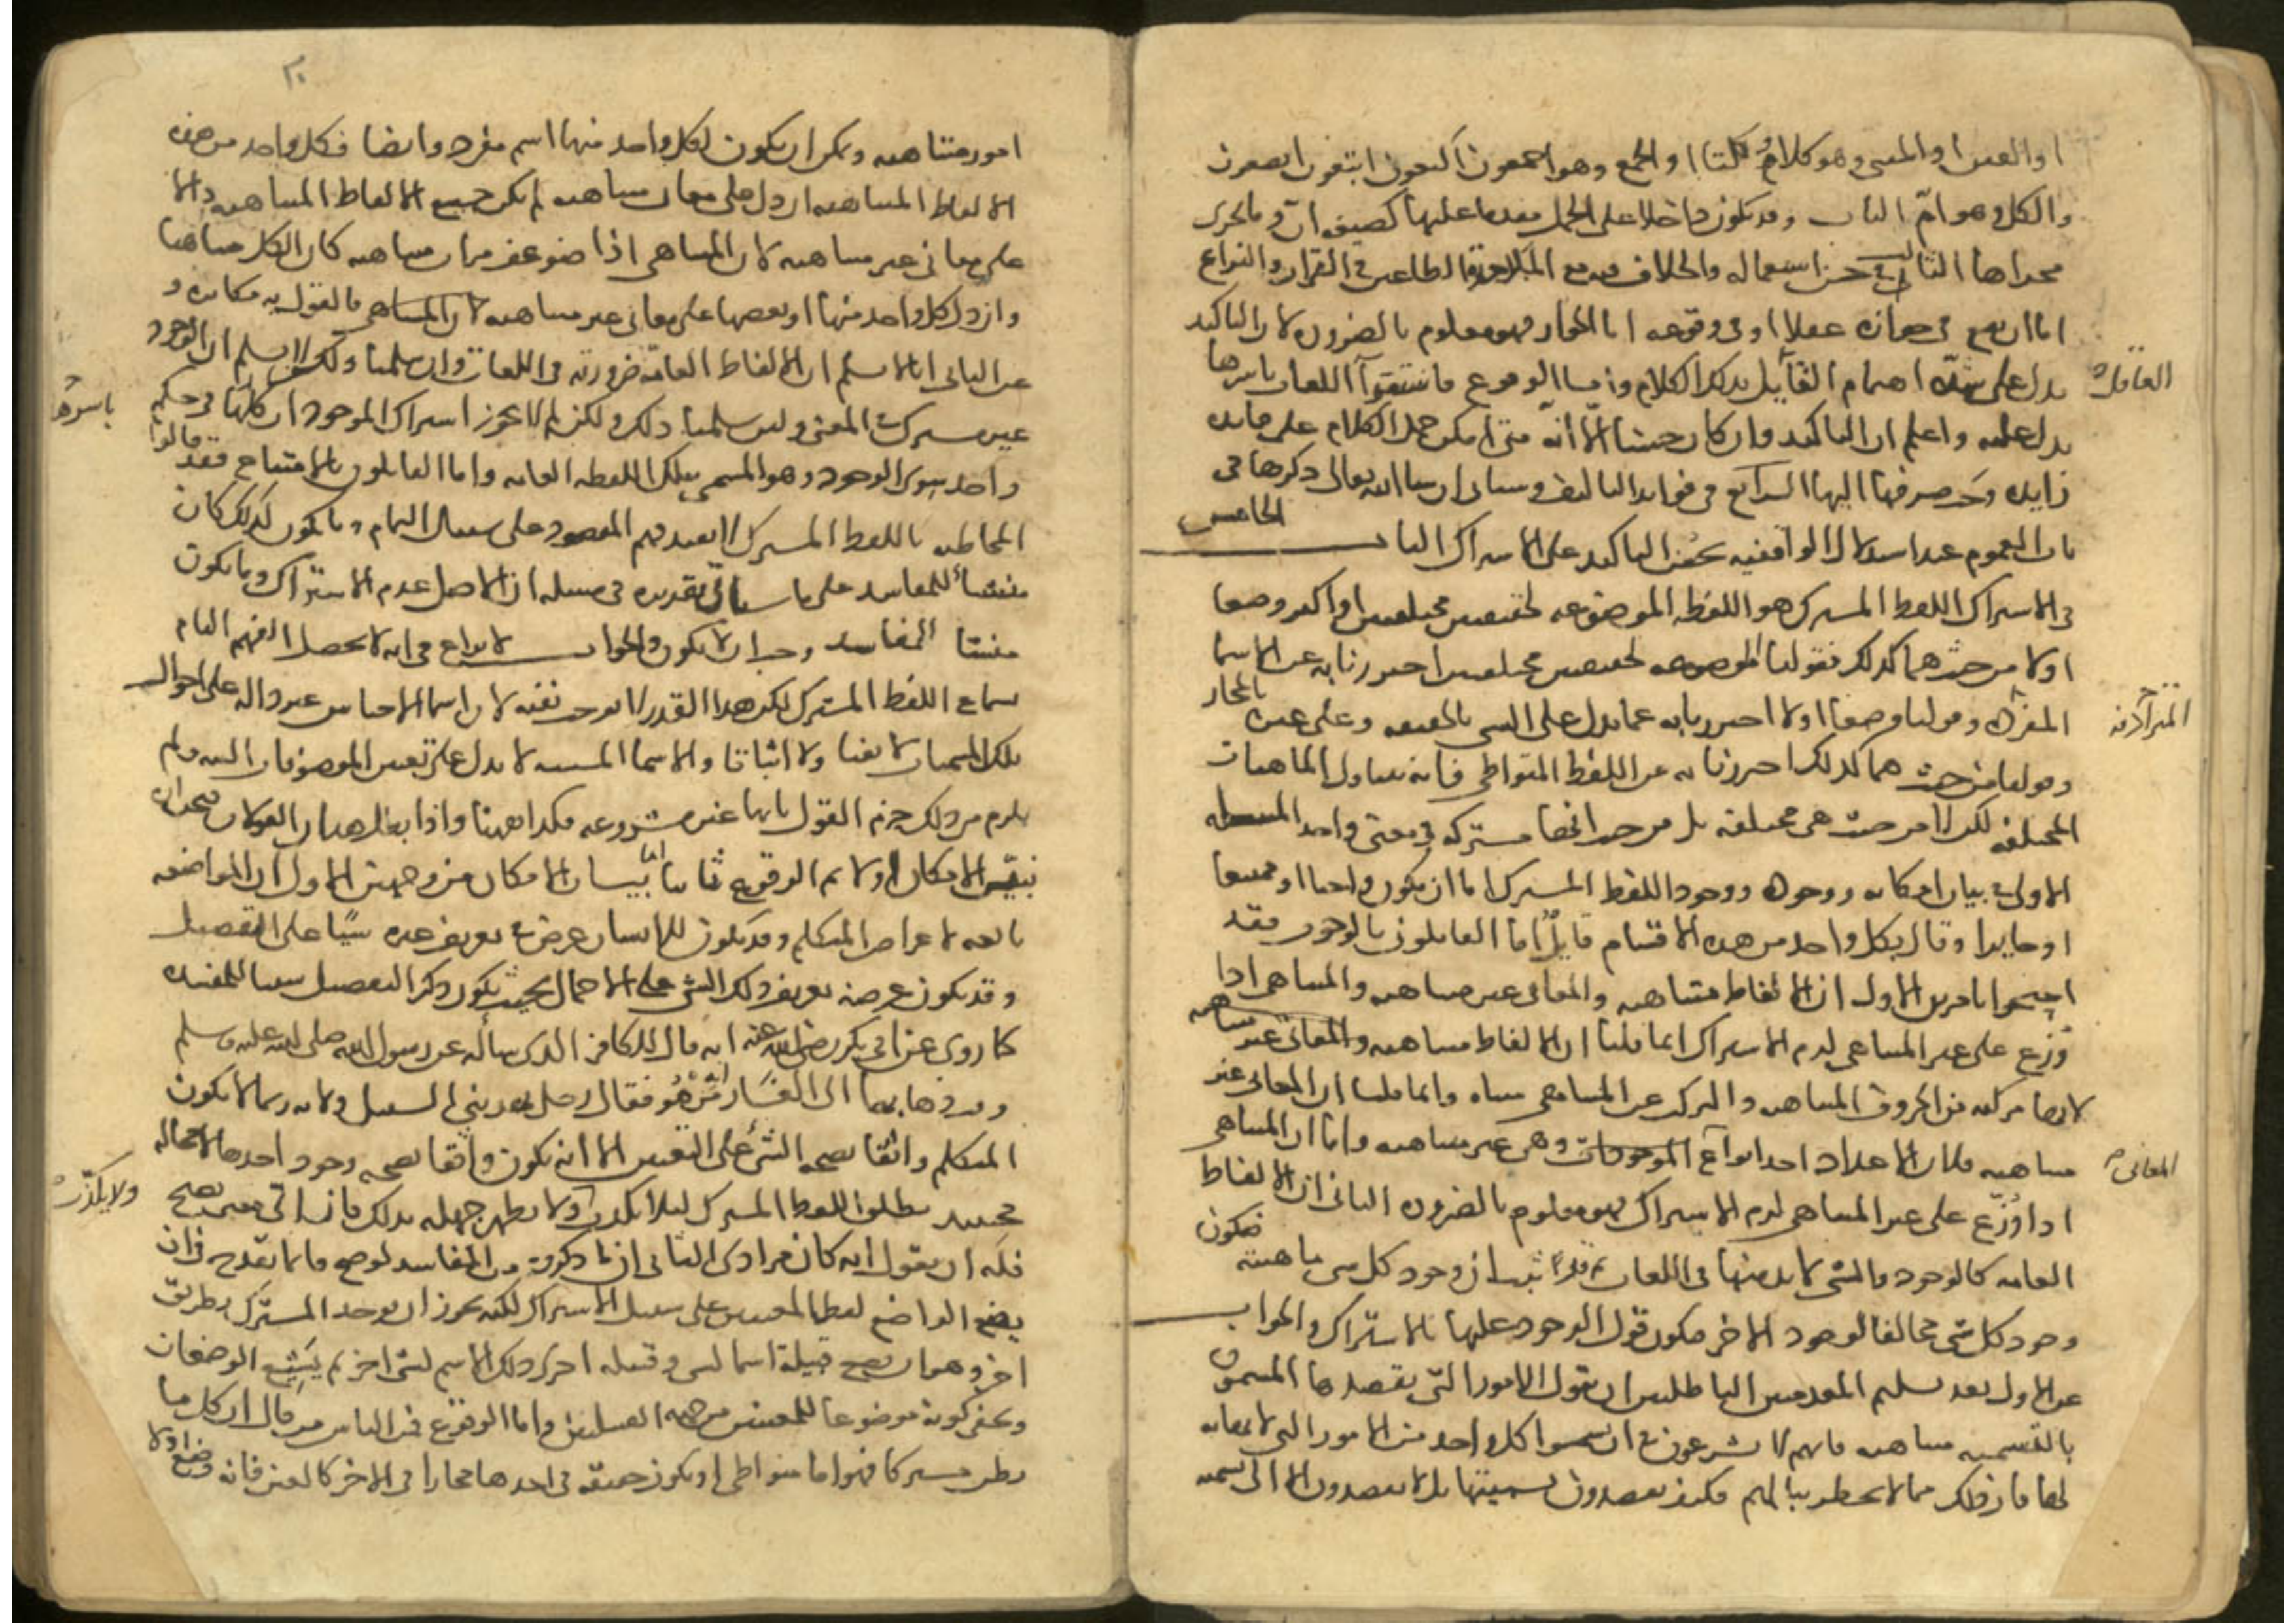 او العين او المثنى وهو كلا وكلتا او الجمع وهو اجمعون اكتعون ابتعون ابصعون
والكل وهو ام الباب وقد يكون داخلا على الجمل مقدما عليها كصيغه ان وما يجرى
مجراها الثالث في حسن استعماله والخلاف فيه مع الملاحدة الطاعنين في القران والنزاع
اما ان يقع في جوازه عقلا او في وقوعه اما الجواز فهو معلوم بالضرورة لان التاكيد
يدل على شدة اهتمام القايل بذلك الكلام واما الوقوع فاستقرا اللغات باسرها
يدل عليه واعلم ان التاكيد وان كان حسنا الا انه متى امكن حمل الكلام على فايده
زايده وجب صرفها اليها الرابع في فوايد التاليف وسياتى ان شا الله تعالى ذكرها في
باب العموم عند استدلال الواقفيه بحسن التاكيد على الاشتراك الباب الخامس
في الاشتراك اللفظ المشترك هو اللفظه الموضوعه لحقيقتين مختلفتين او اكثر وضعا
اولا من حيث هما كذلك فقولنا الموضوعه لحقيقتين مختلفتين احترزنا به عن الاسما
المفرده وقولنا وضعا اولا احترزنا به عما يدل على الشى بالحقيقه وعلى غيره بالمجاز
وقولنا من حيث هما كذلك احترزنا به عن اللفظ المتواطى فانه يتناول الماهيات
المختلفه لكن لا من حيث هى مختلفه بل من حيث انها مشتركه في معنى واحد المسئله
الاولى في بيان امكانه ووجوده ووجود اللفظ المشترك اما ان يكون واجبا او ممتنعا
او جايزا وقال بكل واحد من هذه الاقسام قايل اما القايلون بالوجوب فقد
احتجوا بامرين الاول ان الالفاظ متناهيه والمعانى غير متناهيه والمتناهى اذا
وزع على غير المتناهى لزم الاشتراك انما قلنا ان الالفاظ متناهيه والمعانى غير متناهيه
لانها مركبه من الحروف المتناهيه والمركب من المتناهى متناه وانما قلنا ان المعانى غير
متناهيه فلان الاعداد احد انواع الموجودات وهى غير متناهيه واما ان المتناهى
اذا وزع على غير المتناهى لزم الاشتراك فهو معلوم بالضروره الثانى ان الالفاظ
العامه كالوجود والشى لا بد منها في اللغات ثم قد ثبت ان وجود كل شى ماهيته فيكون
وجود كل شى مخالفا لوجود الاخر فيكون قول الوجود عليها بالاشتراك والجواب
عن الاول بعد تسليم المقدمتين الباطلتين ان نقول الامور التى يقصدها المسمون
بالتسميه متناهيه فانهم لا يشرعون في ان يسموا كل واحد من الامور التى لا نهايه
لها فان ذلك مما لا يخطر ببالهم فكيف يقصدون تسميتها بل لا يقصدون الا الى تسميه
العاقل
المترادفة
المعانى
٢٠
امور متناهيه ويمكن ان يكون لكل واحد منها اسم مفرد وايضا فكل واحد من هذه
الالفاظ المتناهيه ان دل على معان متناهيه لم يكن جميع الالفاظ المتناهيه دالا
على معانى غير متناهيه لان المتناهى اذا ضوعف مرات متناهيه كان الكل متناهيا
وان دل كل واحد منها او بعضها على معانى غير متناهيه فالقول به مكابره و
عن الثانى انا لا نسلم ان الالفاظ العامه ضروريه في اللغات وان سلمنا ذلك لكن لا نسلم ان الوجود
غير مشترك في المعنى ولين سلمنا ذلك ولكن لم لا يجوز اشتراك الموجودات كلها في حكم
واحد سوى الوجود وهو المسمى بتلك اللفظه العامه واما القايلون بالامتناع فقد قالوا
المخاطبه باللفظ المشترك لا يفيد فهم المقصود على سبيل التمام وما يكون كذلك كان
منشأ للمفاسد على ما سياتى تقديره في مسئله ان الاصل عدم الاشتراك وما يكون
منشا المفاسد وجب ان لا يكون والجواب لا نزاع في انه لا يحصل الفهم التام
بسماع اللفظ المشترك لكن هذا القدر لا يوجب نفيه لان اسما الاجناس غير داله على احوال
تلك المسميات لا نفيا ولا اثباتا والاسما المشتقه لا تدل على تعين الموصوفات البته ولم
يلزم من ذلك جزم القول بانها غير مشروعه فكذا ههنا واذا بطل هذان القولان فيجب ان
نبين الامكان اولا ثم الوقوع ثانيا اما بيان الامكان فمن وجهين الاول ان المواضعه
تابعه لاغراض المتكلم وقد يكون للانسان غرض في تعريف غيره شيا على التفصيل
وقد يكون غرضه تعريف ذلك الشى على الاجمال بحيث يكون ذكر التفصيل سببا للمفسده
كما روى عن ابى بكر رضى الله عنه انه قال للكافر الذى ساله عن رسول الله صلى الله عليه وسلم
وقت ذهابهما الى الغار من هو فقال رجل يهدينى السبيل ولانه ربما لا يكون
المتكلم واثقا بصحه الشى على التعيين الا انه يكون واثقا بصحه وجود احدهما لا محاله
فحينيذ يطلق اللفظ المشترك ليلا يكذب ولا يظهر جهله بذلك فان اى معنى يصح
فله ان يقول انه كان مرادى الثانى ان ما ذكروه من المفاسد لو صح فانما يقدح في ان
يضع الواضع لفظا لمعنيين على سبيل الاشتراك لكنه يجوز ان يوجد المشترك بطريق
اخر وهو ان تضع قبيلة اسما لشى وقبيله اخرى ذلك الاسم لشى اخر ثم يشيع الوضعان
ويخفى كونه موضوعا للمعنيين من جهه القبيلتين واما الوقوع فمن الناس من قال ان كل ما
يظن مشتركا فهو اما متواطى او يكون حقيقه في احدهما مجازا في الاخر كالعين فانه وضع اولا
باسرها
ولا يكذب